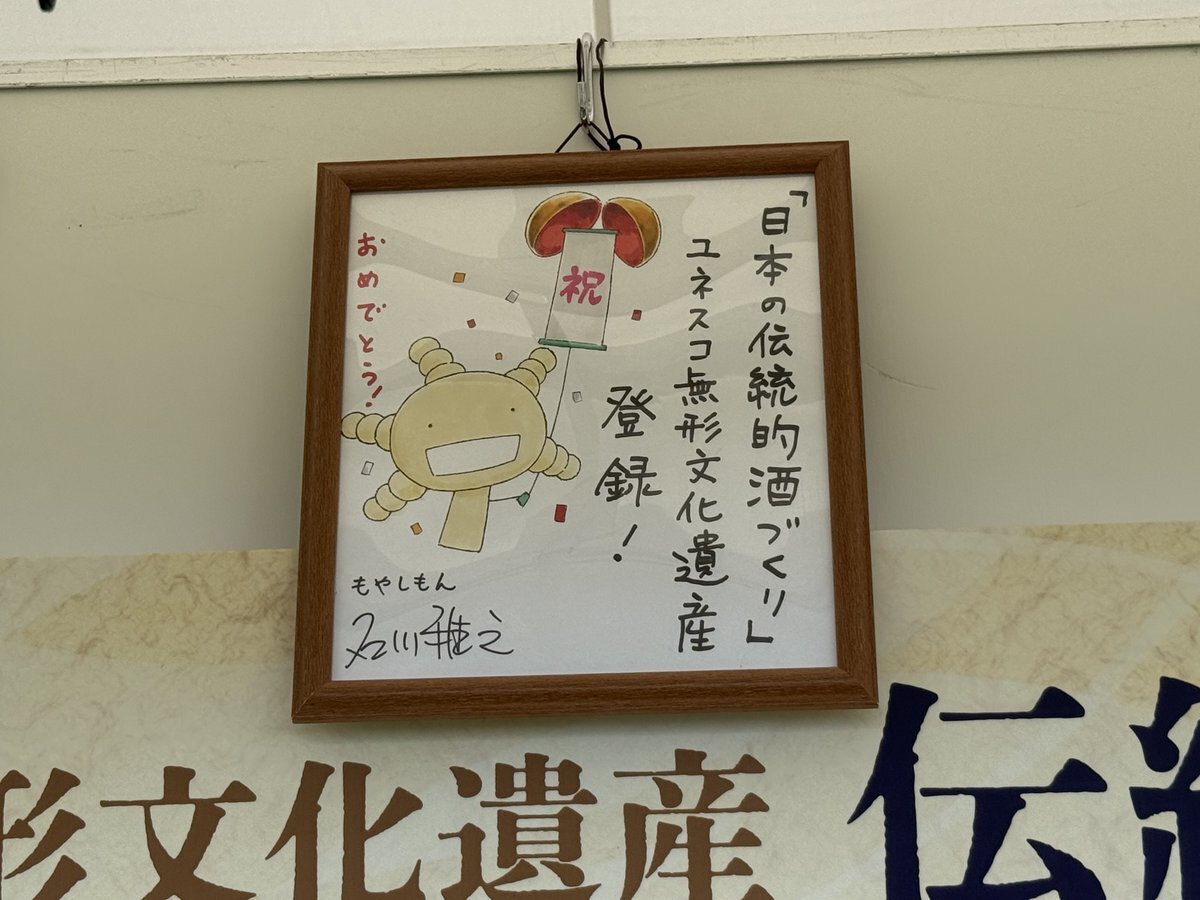 「日本の伝統的酒づくり」
ユネスコ無形文化遺産
登録！
祝
おめでとう！
もやしもん
石川雅之
形文化遺産
伝統